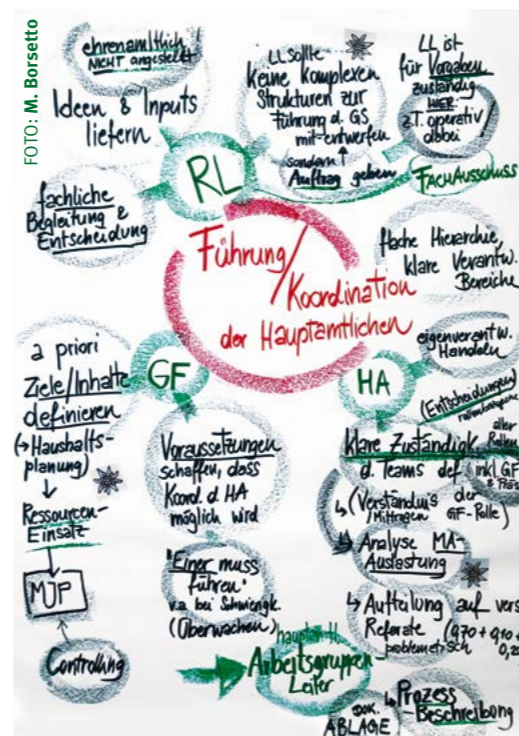 FOTO: M. Borsetto
ehrenamtlich
NICHT angestellt
Ideen & Inputs
liefern
fachliche
Begleitung &
Entscheidung
RL
LL sollte
keine komplexen
Strukturen zur
Führung d. GS
mit-entwerfen
sondern
Auftrag geben
LL ist
für Vorgaben
zuständig
HIER:
z.T. operativ
dabei
FACHAUSSCHUSS
Führung/
Koordination
der Hauptamtlichen
flache Hierarchie,
klare Verantw.
Bereiche
GF
a priori
Ziele/Inhalte
definieren
(→ Haushalts-
planung)
Ressourcen-
Einsatz
MJP
Controlling
Voraussetzungen
schaffen, dass
Koord. d. HA
möglich wird
"Einer muss
führen"
v.a. bei Schwierigk.
(Überwachen)
HA
eigenverantw.
Handeln
(Entscheidungen)
klare Zuständigk.
d. Teams def.
aller
Rollen
inkl. GF
& Präs
(Verständnis
/Mittragen
der
GF-Rolle)
Analyse MA-
Auslastung
Aufteilung auf vers
Referate
problematisch
(0,70 + 0,10 +
0,20
hauptamtl.
Arbeitsgruppen-
Leiter
DOK.
ABLAGE
Prozess
-Beschreibung